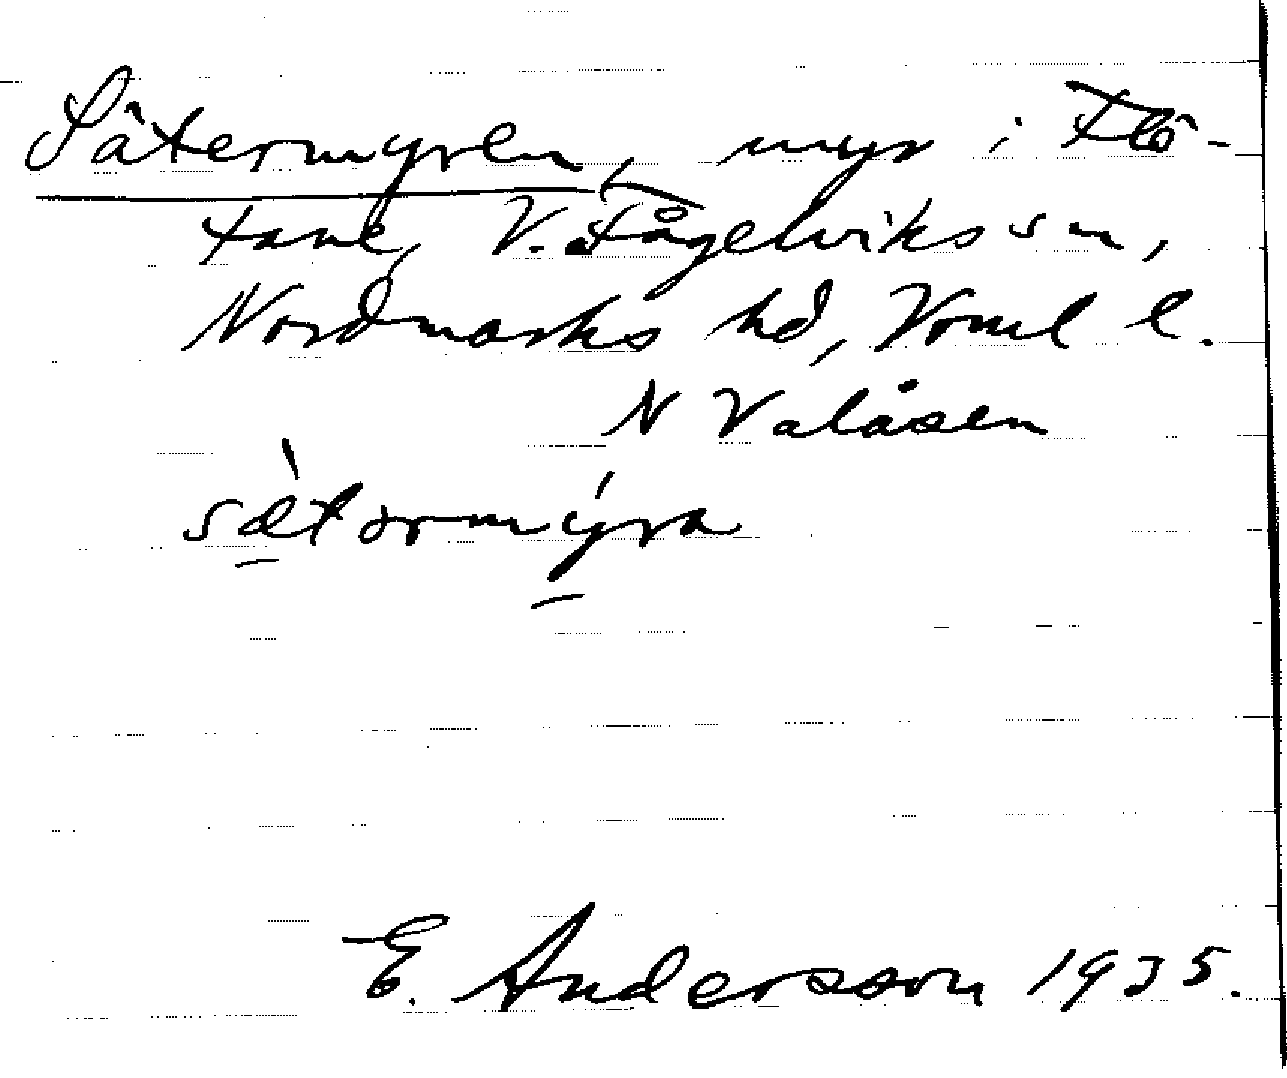 Sätermyren, myr i Flö-
tane, V. Fågelviks sn,
Nordmarks hd, Vrml l.
N Valåsen
sætərmýra
E. Andersson 1935.